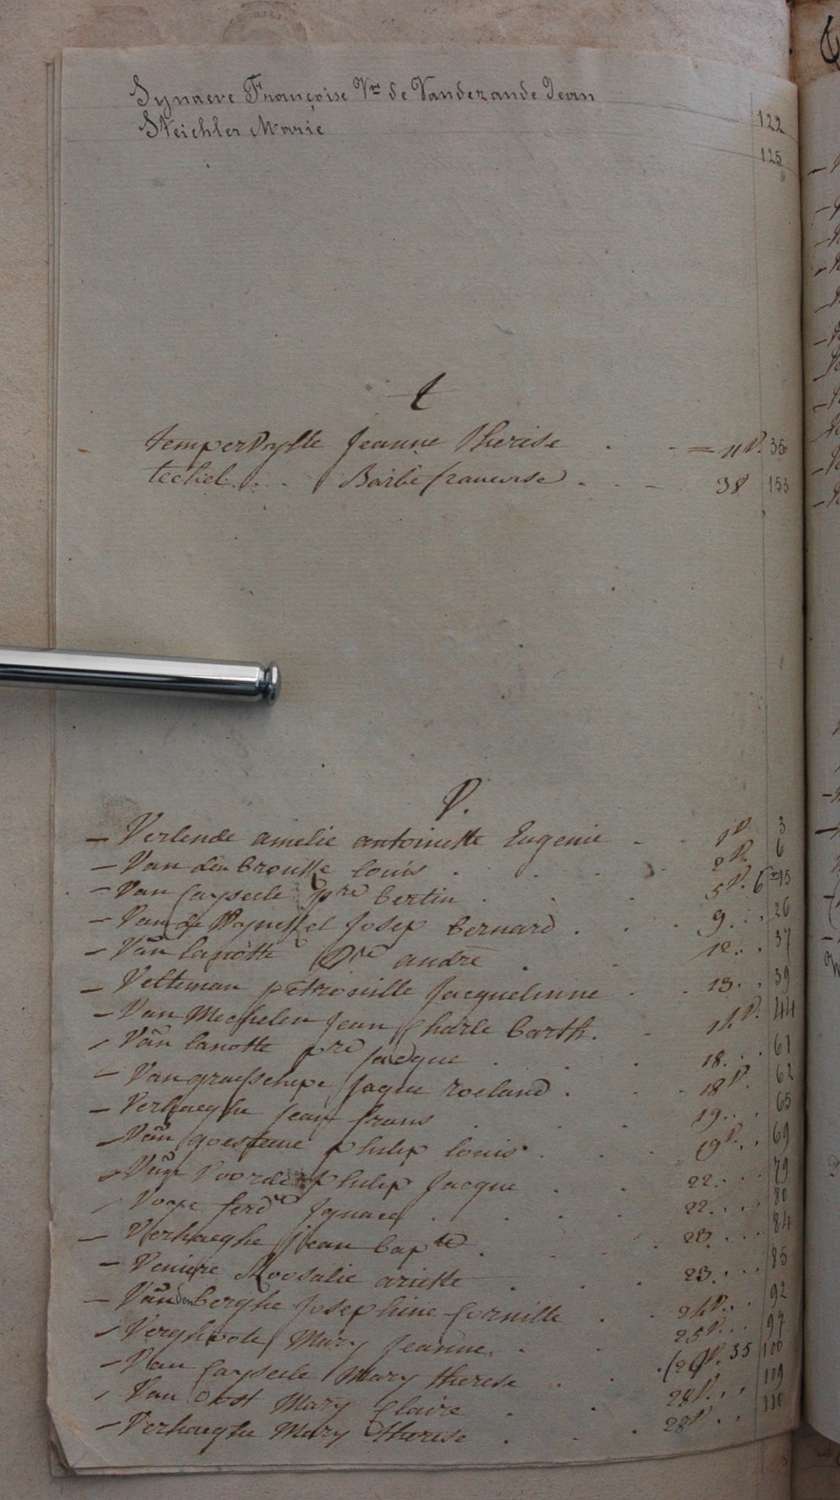 Synaeve Françoise Ve de Vanderzande Jean 122
Steichler Marie 125
t
temperVylle Jeanne therise = 11 V. 35
Barbe francoise 38 153
V.
– Verlende amelie antoinette Eugenie 1 V. 3
– Van den broutte louis 2 V. 6
– Van Cayseele pre bertin 5 V.
– Van de Josep bernard 9 26
– Van lanotte pre andre 12 37
– Veltman petronille Jacquelinne 13 39
– Van Mechelen Jean Charle barth. 44
– Van lanotte pre Jacque 18 61
– Van graefschepe Jaque roeland 18 V. 62
– Verhaeghe Jean frans 19 65
– Van philip louis 19 V. 69
– Van Voorde philip Jacque 22 79
– ferde Ignace 22 80
– Verhaeghe Jean bapte 23 84
– Roosalie ariette 23 85
– Van den berghe Josephine Cornille 24 V. 92
– Mary Jeanne 25 V. 97
– Van Cayseele Mary therese 26 V. 35 100
– Van Oost Mary Claire 28 V. 109
– Verhaeghe Mary therese 28 V. 110